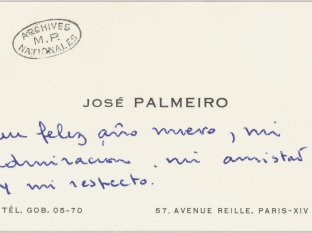 ARCHIVES
M.P.
NATIONALES
JOSÉ PALMEIRO
un feliz año nuevo, mi
admiracion mi amistad
y mi respecto.
TÉL. GOB. 05-70 57, AVENUE REILLE, PARIS-XIV